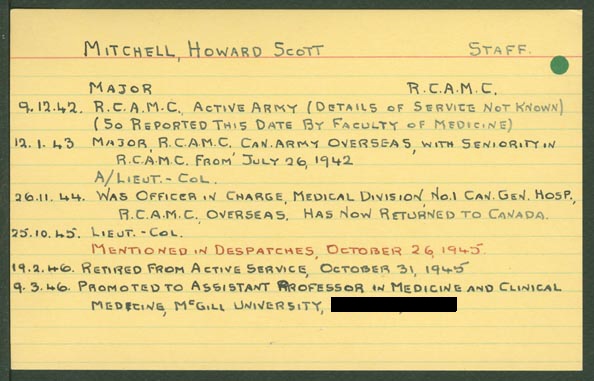 MITCHELL, HOWARD SCOTT STAFF.
MAJOR R.C.A.M.C.
9.12.42. R.C.A.M.C. ACTIVE ARMY (DETAILS OF SERVICE NOT KNOWN)
(SO REPORTED THIS DATE BY FACULTY OF MEDICINE)
12.1.43 MAJOR, R.C.A.M.C. CAN. ARMY OVERSEAS, WITH SENIORITY IN
R.C.A.M.C. FROM JULY 26, 1942
A/LIEUT.-COL.
26.11.44. WAS OFFICER IN CHARGE, MEDICAL DIVISION, NO.1 CAN. GEN. HOSP.,
R.C.A.M.C. OVERSEAS. HAS NOW RETURNED TO CANADA.
25.10.45. LIEUT.-COL.
MENTIONED IN DESPATCHES, OCTOBER 26, 1945.
19.2.46. RETIRED FROM ACTIVE SERVICE, OCTOBER 31, 1945
9.3.46. PROMOTED TO ASSISTANT PROFESSOR IN MEDICINE AND CLINICAL
MEDICINE, McGILL UNIVERSITY,